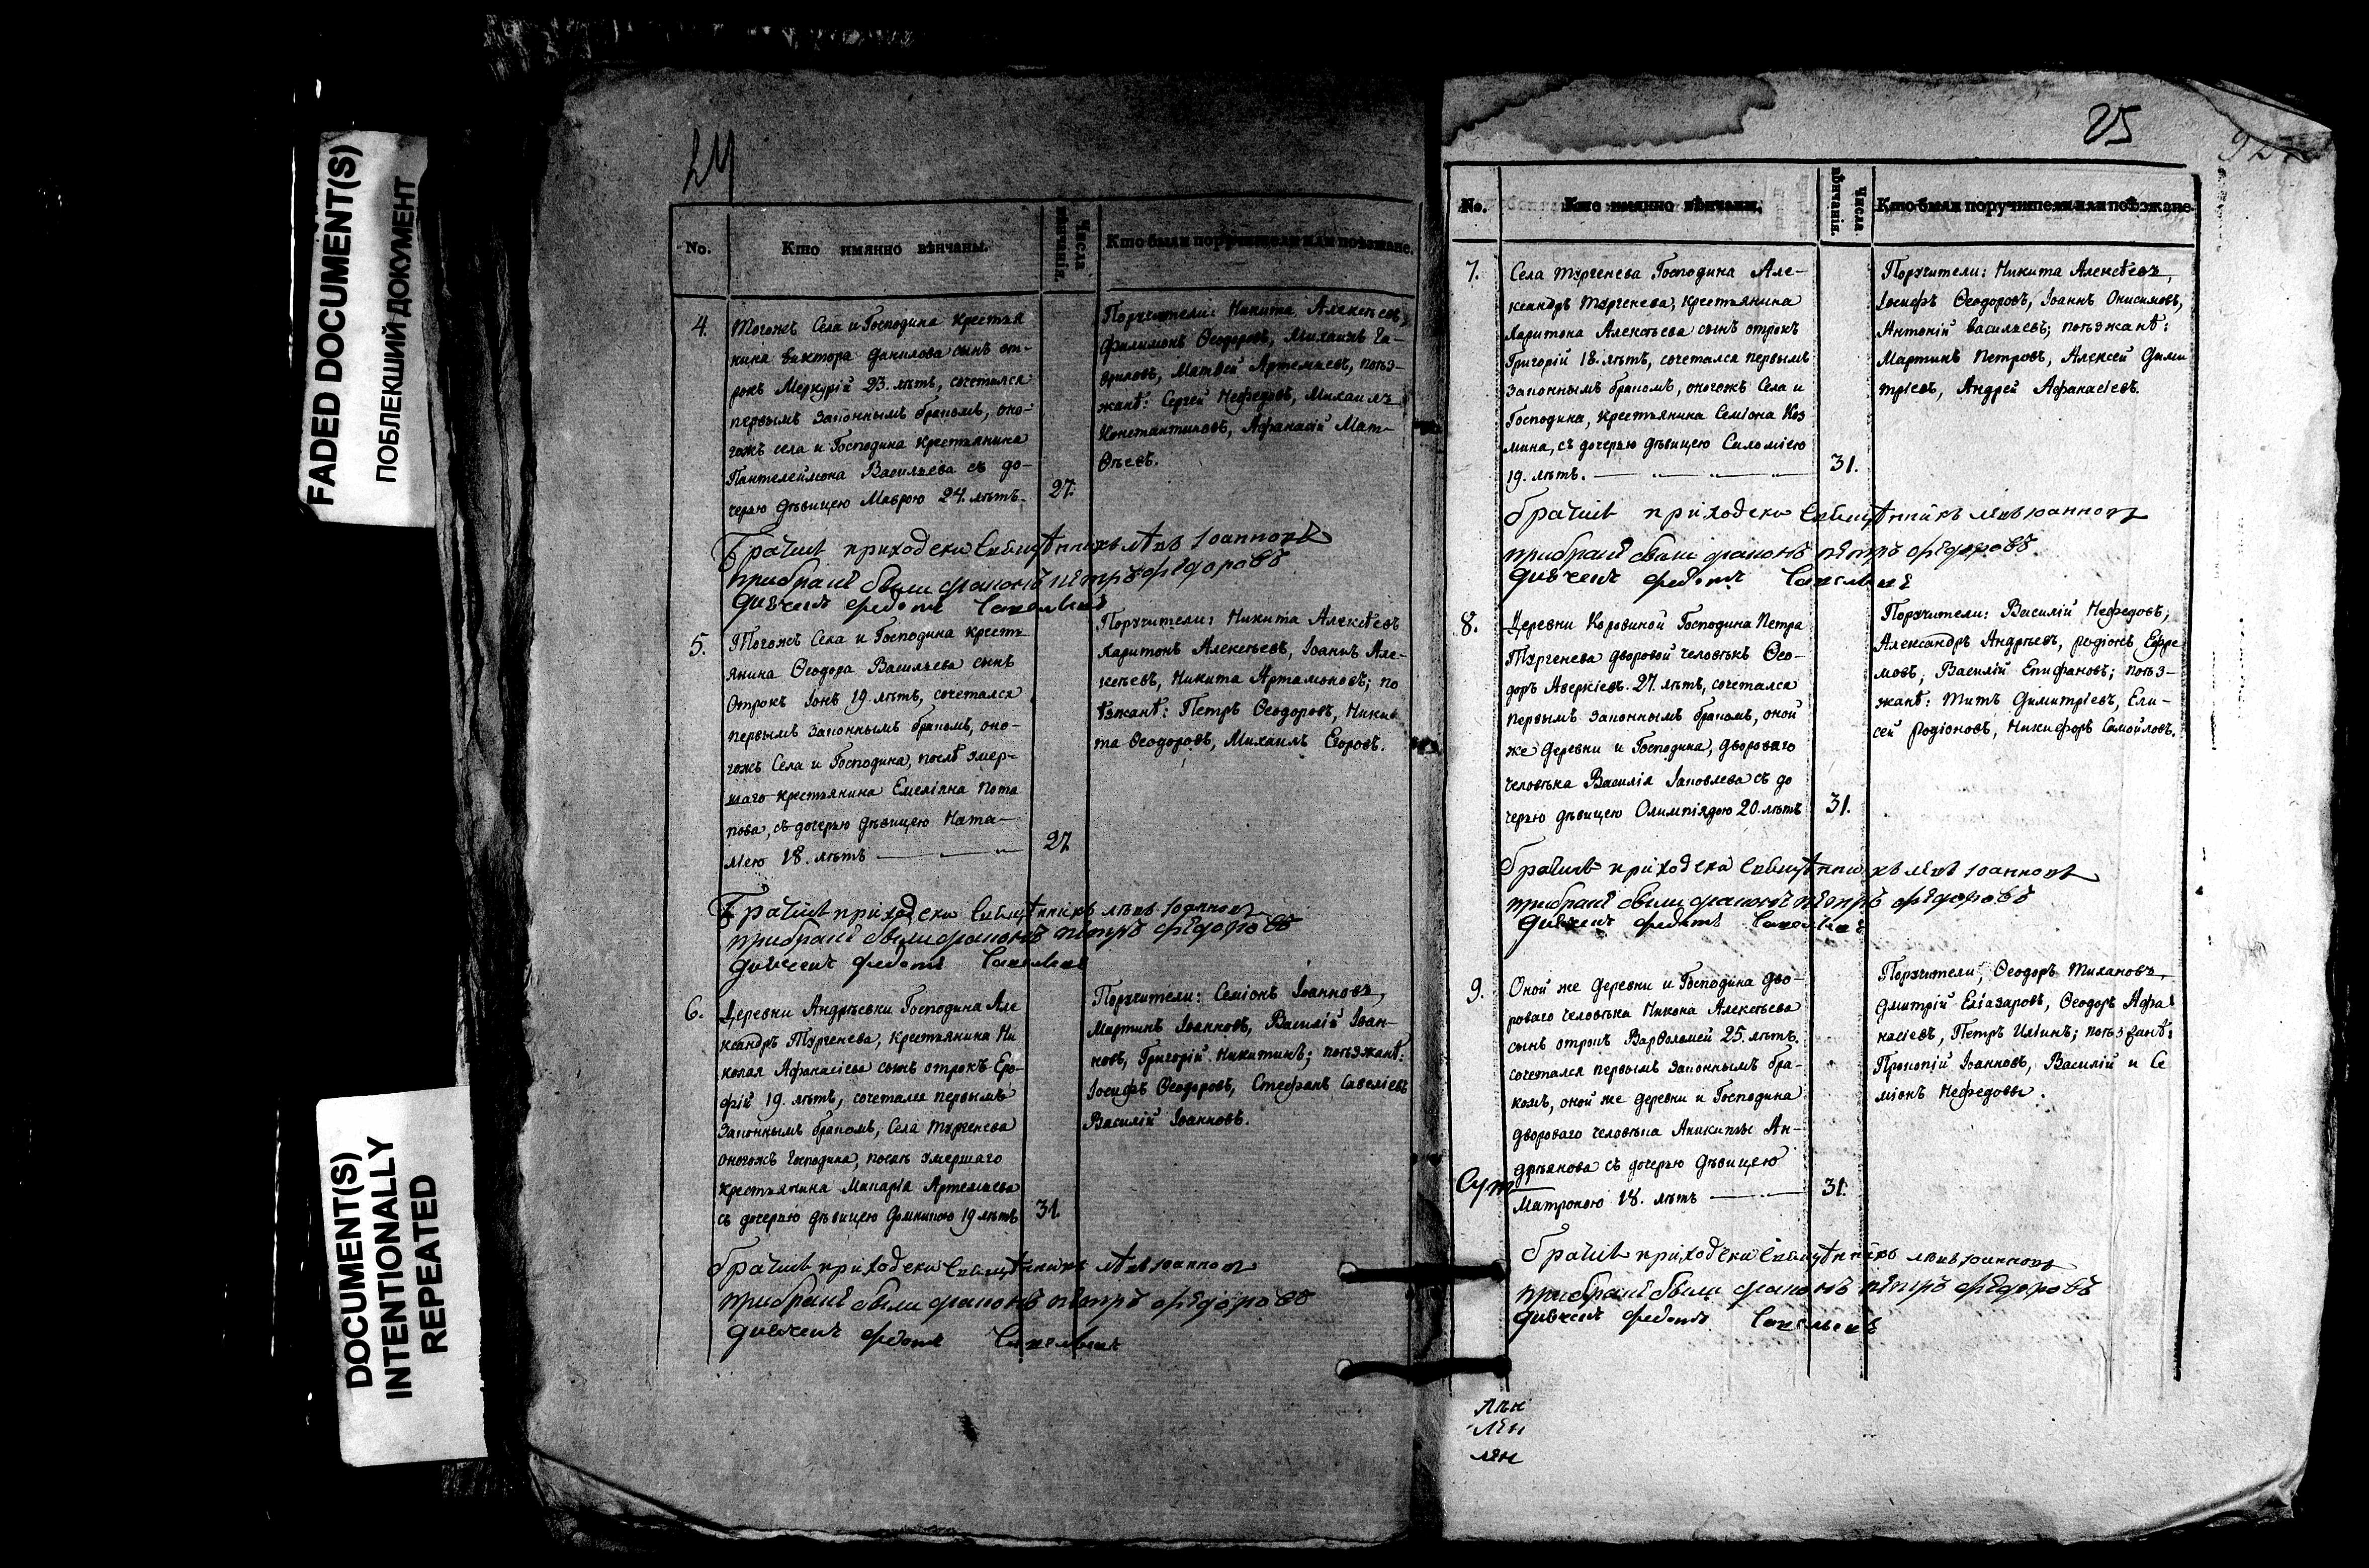 FADED DOCUMENT(S)
ПОБЛЕКШИЙ ДОКУМЕНТ
DOCUMENT(S)
INTENTIONALLY
REPEATED
24
No.
Кто имянно вѣнчаны.
Числа вѣнчанія.
Кто были поручители или поѣзжане.
4.
Тогожъ Села и Господина Крестья
нина Виктора Данилова сынъ от-
рокъ Меркурій 23. лѣтъ, сочетался
первымъ законнымъ бракомъ, оно-
гожъ села и Господина крестьянина
Пантелеймона Васильева съ до-
черью дѣвицею Маврою 24. лѣтъ.
27.
Поручители: Никита Алексѣевъ,
Филимонъ Ѳеодоровъ, Михаилъ Га-
вриловъ, Матвей Артемьевъ, поѣз-
жанѣ: Сергей Нефедовъ, Михаилъ
Константиновъ, Афанасій Мат-
ѳѣевъ.
приходски Священникъ Левъ Iоанновъ
при браке были диаконъ петръ федоровъ
дьячекъ федотъ
5.
Тогожъ Села и Господина кресть
янина Ѳеодора Васильева сынъ
Отрокъ Iонъ 19. лѣтъ, сочетался
первымъ законнымъ бракомъ, оно-
гожъ Села и Господина, послѣ умер-
шаго крестьянина Емеліяна Пота
пова, съ дочерью дѣвицею Ната-
ліею 18. лѣтъ
27
Поручители: Никита Алексѣевъ
Харитонъ Алексѣевъ, Iоаннъ Але-
ксѣевъ, Никита Артамоновъ; по
ѣзжанѣ: Петръ Ѳеодоровъ, Ники
та Ѳеодоровъ, Михаилъ Егоровъ.
приходски Священникъ левъ Iоанновъ
при браке были диаконъ петръ федоровъ
дьячекъ федотъ
6.
Деревни Андрѣевки Господина Але
ксандръ Тургенева, Крестьянина Ни
колая Афанасіева сынъ отрокъ Еро-
фій 19. лѣтъ, сочетался первымъ
Законнымъ бракомъ, Села Тургенева
оногожъ Господина, послѣ умершаго
крестьянина Макарія Артемьева
съ дочерью дѣвицею Домникою 19 лѣтъ
31.
Поручители: Семіонъ Iоанновъ,
Мартинъ Iоанновъ, Василій Iоан-
новъ, Григорій Никитинъ; поѣзжанѣ:
Iосифъ Ѳеодоровъ, Стефанъ Савеліевъ
Василій Iоанновъ.
приходски Священникъ левъ Iоанновъ
при браке были диаконъ петръ федоровъ
дьячекъ федотъ
25
No.
Кто имянно вѣнчаны.
Числа вѣнчанія.
Кто были поручители или поѣзжане.
7.
Села Тургенева Господина Але-
ксандръ Тургенева, крестьянина
Харитона Алексѣева сынъ отрокъ
Григорій 18. лѣтъ, сочетался первымъ
законнымъ бракомъ, оногожъ Села и
Господина, крестьянина Семіона Коз
мина, съ дочерью дѣвицею Саломіею
19. лѣтъ.
31.
Поручители: Никита Алексѣевъ,
Iосифъ Ѳеодоровъ, Iоаннъ Онисимовъ,
Антоній Васильевъ; поѣзжанѣ:
Мартинъ Петровъ, Алексей Дими
тріевъ, Андрей Афанасіевъ.
приходски Священникъ левъ Iоанновъ
при браке были диаконъ петръ федоровъ
дьячекъ федотъ
8.
Деревни Коровиной Господина Петра
Тургенева дворовой человѣкъ Ѳео-
доръ Аверкіевъ. 27. лѣтъ, сочетался
первымъ законнымъ бракомъ, оной
же деревни и Господина, двороваго
человѣка Василія Iаковлева съ до
черью дѣвицею Олимпіядою 20. лѣтъ
31.
Поручители: Василій Нефедовъ,
Александръ Андрѣевъ, Родіонъ Ефре
мовъ, Василій Епифановъ; поѣз-
жанѣ: Титъ Димитріевъ, Ели-
сей Родіоновъ, Никифоръ Самойловъ.
приходски Священникъ левъ Iоанновъ
при браке были диаконъ петръ федоровъ
дьячекъ федотъ
9.
Оной же деревни и Господина дво-
роваго человѣка Никона Алексѣева
сынъ отрокъ Варѳоломей 25. лѣтъ.
сочетался первымъ законнымъ бра-
комъ, оной же деревни и Господина
двороваго человѣка Аникиты Ан-
дрѣянова съ дочерью дѣвицею
Матроною 18. лѣтъ
31.
Поручители, Ѳеодоръ Тихановъ,
Дмитрій Еліазаровъ, Ѳеодоръ Афа
насіевъ, Петръ Ильинъ; поѣзжанѣ:
Прокопій Iоанновъ, Василій и Се
міонъ Нефедовы.
приходски Священникъ левъ Iоанновъ
при браке были диаконъ петръ федоровъ
дьячекъ федотъ